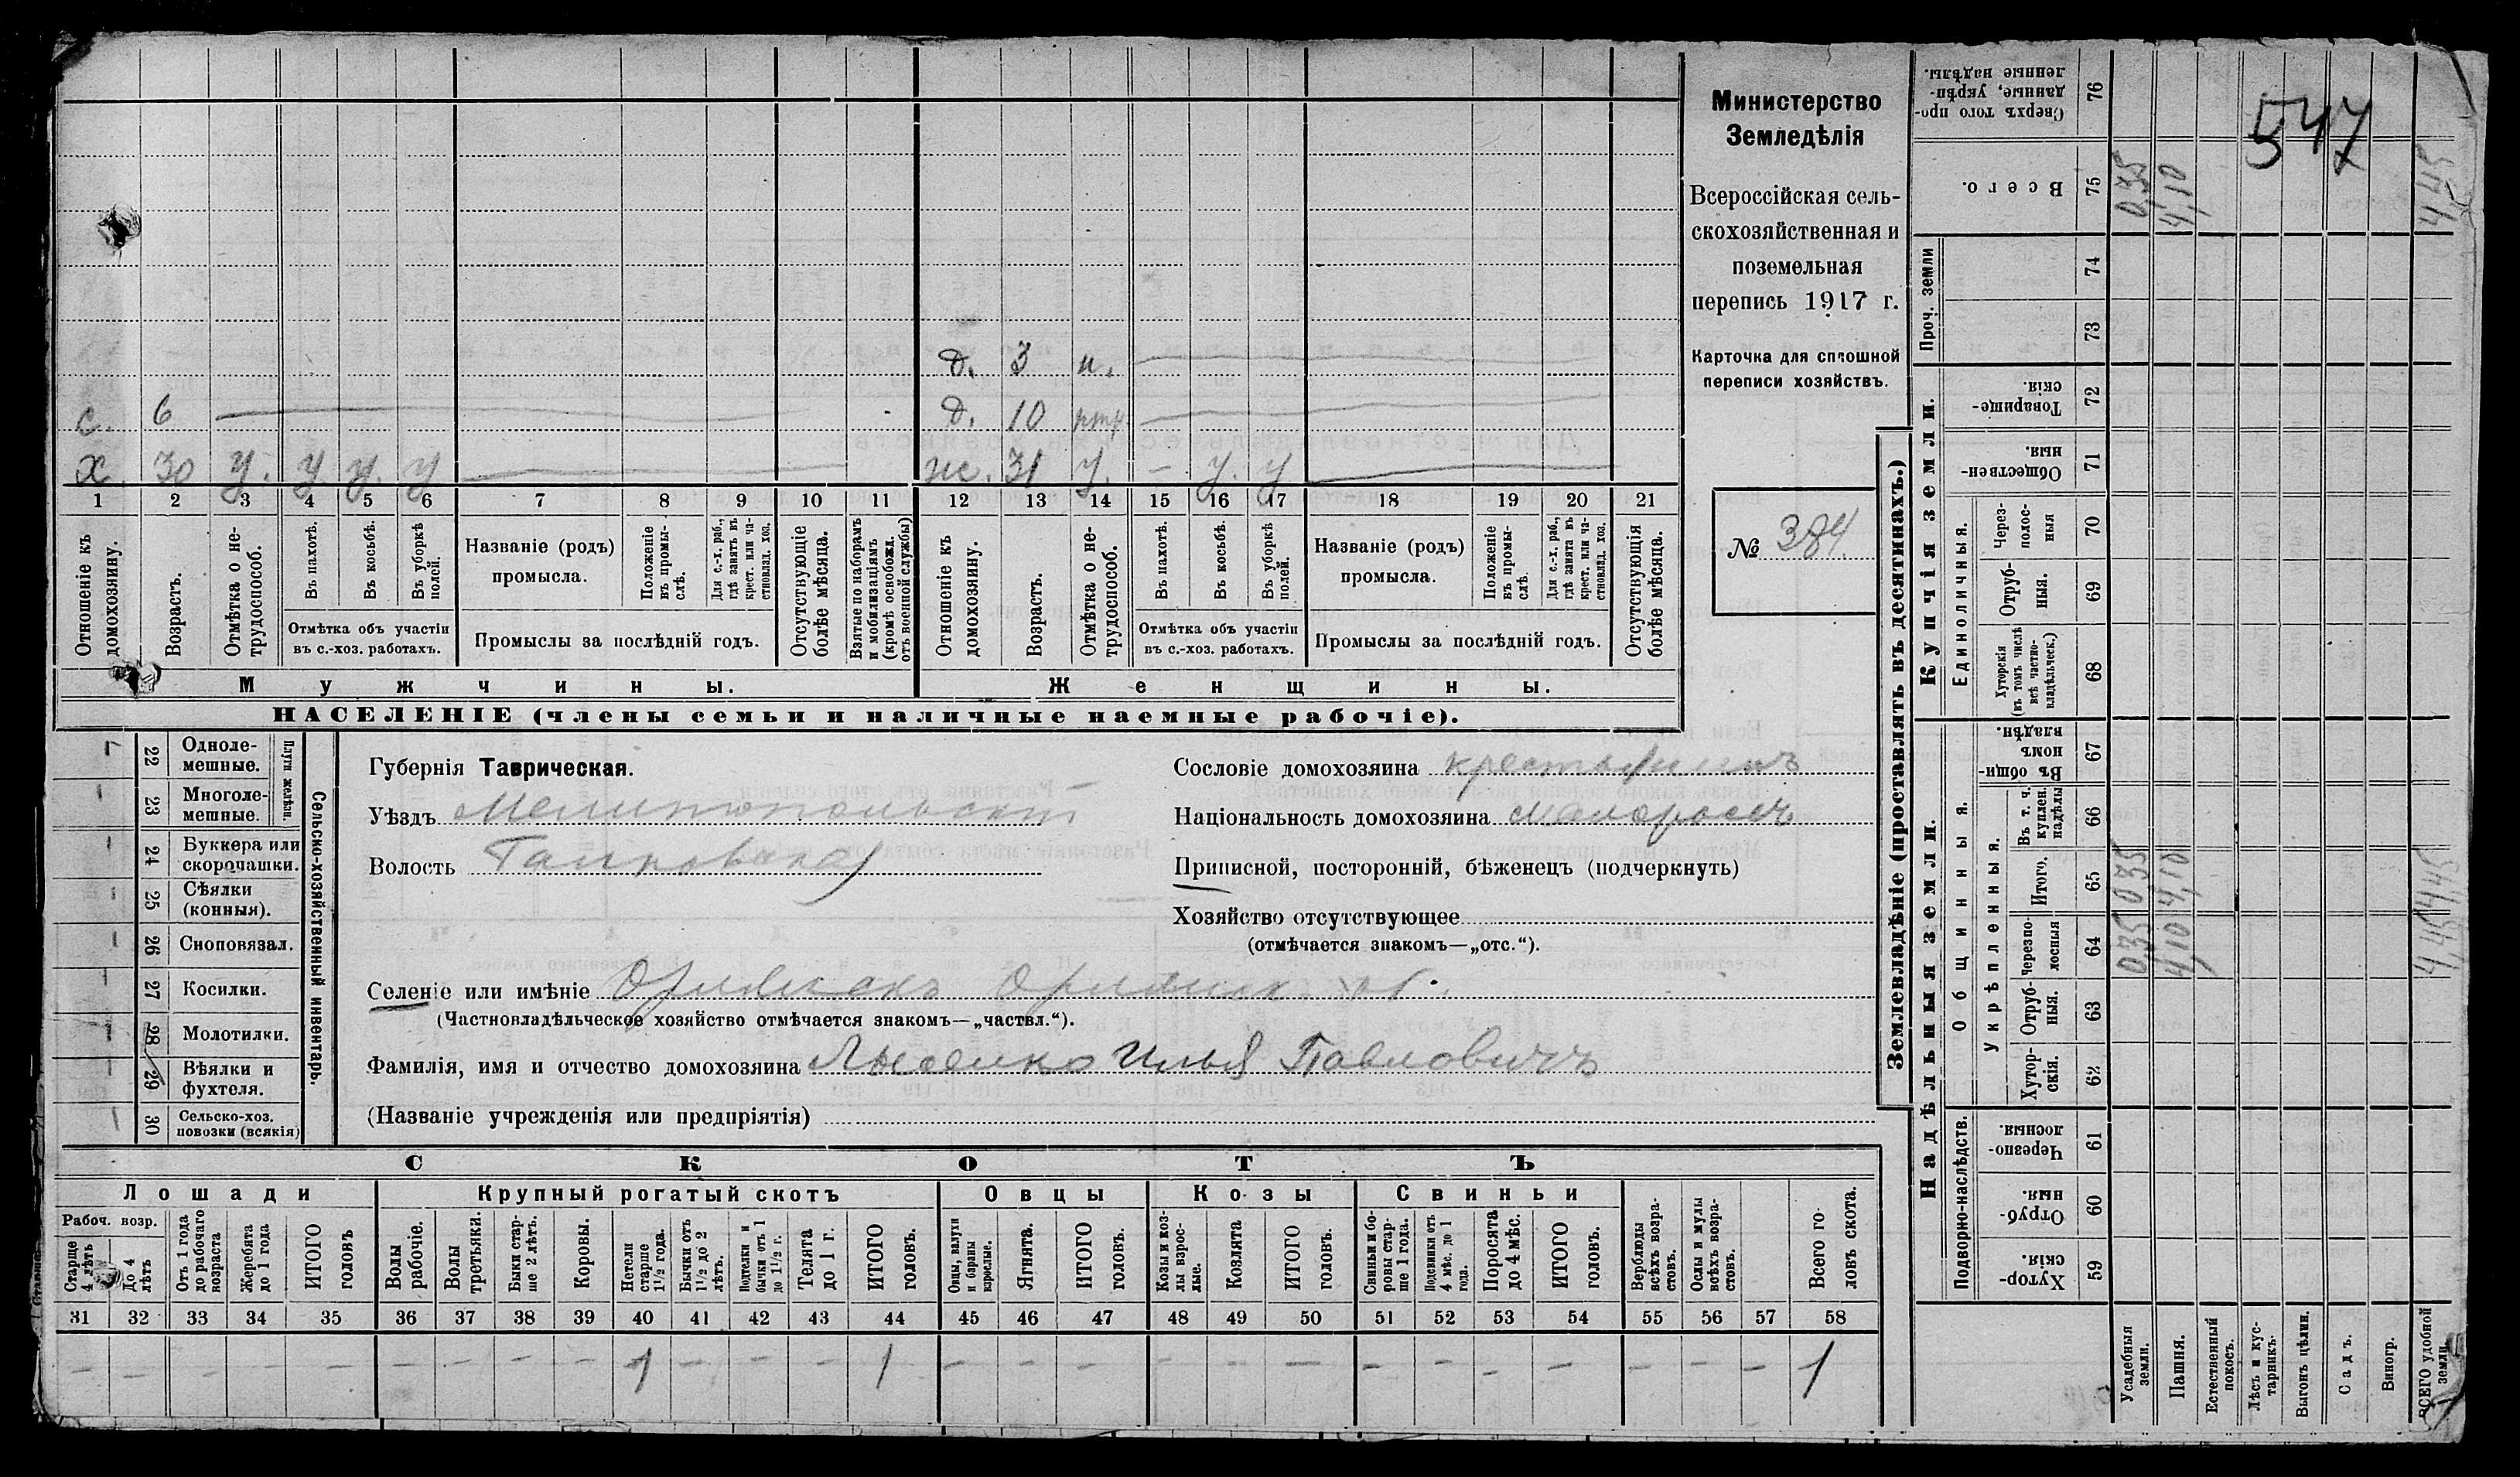 547
Министерство
Земледѣлія
Всероссійская сель-
скохозяйственная и
поземельная
перепись 1917 г.
Карточка для сплошной
переписи хозяйствъ.
№ 384
д. 3 н.
с. 6 д. 10
х. 30 у. у. у. у ж. 31 у. – у. у
1 2 3 4 5 6 7 8 9 10 11 12 13 14 15 16 17 18 19 20 21
Отношеніе къ домохозяину.
Возрастъ.
Отмѣтка о не-трудоспособ.
Въ пахотѣ.
Въ косьбѣ.
Въ уборкѣ полей.
Отмѣтка объ участіи
въ с.-хоз. работахъ.
Названіе (родъ)
промысла.
Положеніе въ промы-слѣ.
Для с.-х. раб., гдѣ занятъ въ крест. или ча-стновлад. хоз.
Промыслы за послѣдній годъ.
Отсутствующіе болѣе мѣсяца.
Взятые по наборамъ и мобилизаціямъ (кромѣ освобожд. отъ военной службы)
Отношеніе къ домохозяину.
Возрастъ.
Отмѣтка о не-трудоспособ.
Въ пахотѣ.
Въ косьбѣ.
Въ уборкѣ полей.
Отмѣтка объ участіи
въ с.-хоз. работахъ.
Названіе (родъ)
промысла.
Положеніе въ промы-слѣ.
Для с.-х. раб., гдѣ занята въ крест. или ча-стновлад. хоз.
Промыслы за послѣдній годъ.
Отсутствующія болѣе мѣсяца.
Мужчины. Женщины.
НАСЕЛЕНІЕ (члены семьи и наличные наемные рабочіе).
Сельско-хозяйственный инвентарь.
Плуги желѣзн.
22 Одноле-мешные.
23 Многоле-мешные.
24 Буккера или скоропашки.
25 Сѣялки (конныя).
26 Сноповязал.
27 Косилки.
28 Молотилки.
29 Вѣялки и фухтеля.
30 Сельско-хоз. повозки (всякія)
Губернія Таврическая.
Уѣздъ Мелитопольскій
Волость
Сословіе домохозяина крестьянинъ
Національность домохозяина малороссъ
Приписной, посторонній, бѣженецъ (подчеркнуть)
Хозяйство отсутствующее
(отмѣчается знакомъ—„отс.“).
Селеніе или имѣніе Орлянскъ
(Частновладѣльческое хозяйство отмѣчается знакомъ—„частвл.“).
Фамилія, имя и отчество домохозяина Лысенко Илья Павловичъ
(Названіе учрежденія или предпріятія)
СКОТЪ
Лошади Крупный рогатый скотъ Овцы Козы Свиньи
Рабоч. возр.
Старше 4 лѣтъ
До 4 лѣтъ
Отъ 1 года до рабочаго возраста
Жеребята до 1 года
ИТОГО головъ
Волы рабочіе.
Волы третьяки.
Быки стар-ше 2 лѣтъ.
Коровы.
Нетели старше 1½ года.
Бычки отъ 1½ до 2 лѣтъ.
Подтелки и бычки отъ 1 до 1½ г.
Телята до 1 г.
ИТОГО головъ.
Овцы, валухи и бараны взрослые.
Ягнята.
ИТОГО головъ.
Козы и коз-лы взрос-лые.
Козлята
ИТОГО головъ.
Свиньи и бо-ровы стар-ше 1 года.
Подсвинки отъ 4 мѣс. до 1 года.
Поросята до 4 мѣс.
ИТОГО головъ.
Верблюды всѣхъ возра-стовъ.
Ослы и мулы всѣхъ возра-стовъ.
Всего го-ловъ скота.
31 32 33 34 35 36 37 38 39 40 41 42 43 44 45 46 47 48 49 50 51 52 53 54 55 56 57 58
– – – – – – – – – 1 – – – 1 – – – – – – – – – – – – 1
Землевладѣніе (проставлять въ десятинахъ.)
Надѣльныя земли.
Купчія земли.
Проч. земли
Подворно-наслѣдств.
Общинныя.
Укрѣпленныя.
Единоличныя.
Сверхъ того про-данные, укрѣп-ленные надѣлы. 76
Всего. 75 0,35 4,10 4,45
74
73
Товарище-скія. 72
Обществен-ныя. 71
Через-полос-ныя 70
Отруб-ныя. 69
Хуторскія (въ томъ числѣ всѣ частно-владѣльческ.) 68
Въ общин-номъ владѣн. 67
Въ т. ч. куплен. надѣлы 66
Итого. 65 0,35 4,10 4,45
Черезпо-лосныя 64 0,35 4,10 4,45
Отруб-ныя. 63
Хутор-скія. 62
Черезпо-лосныя. 61
Отруб-ныя. 60
Хутор-скія. 59
Усадебныя земли.
Пашня.
Естественный покосъ.
Лѣсъ и кус-тарникъ.
Выгонъ цѣлин.
Садъ.
Виногр.
ВСЕГО удобной земли.